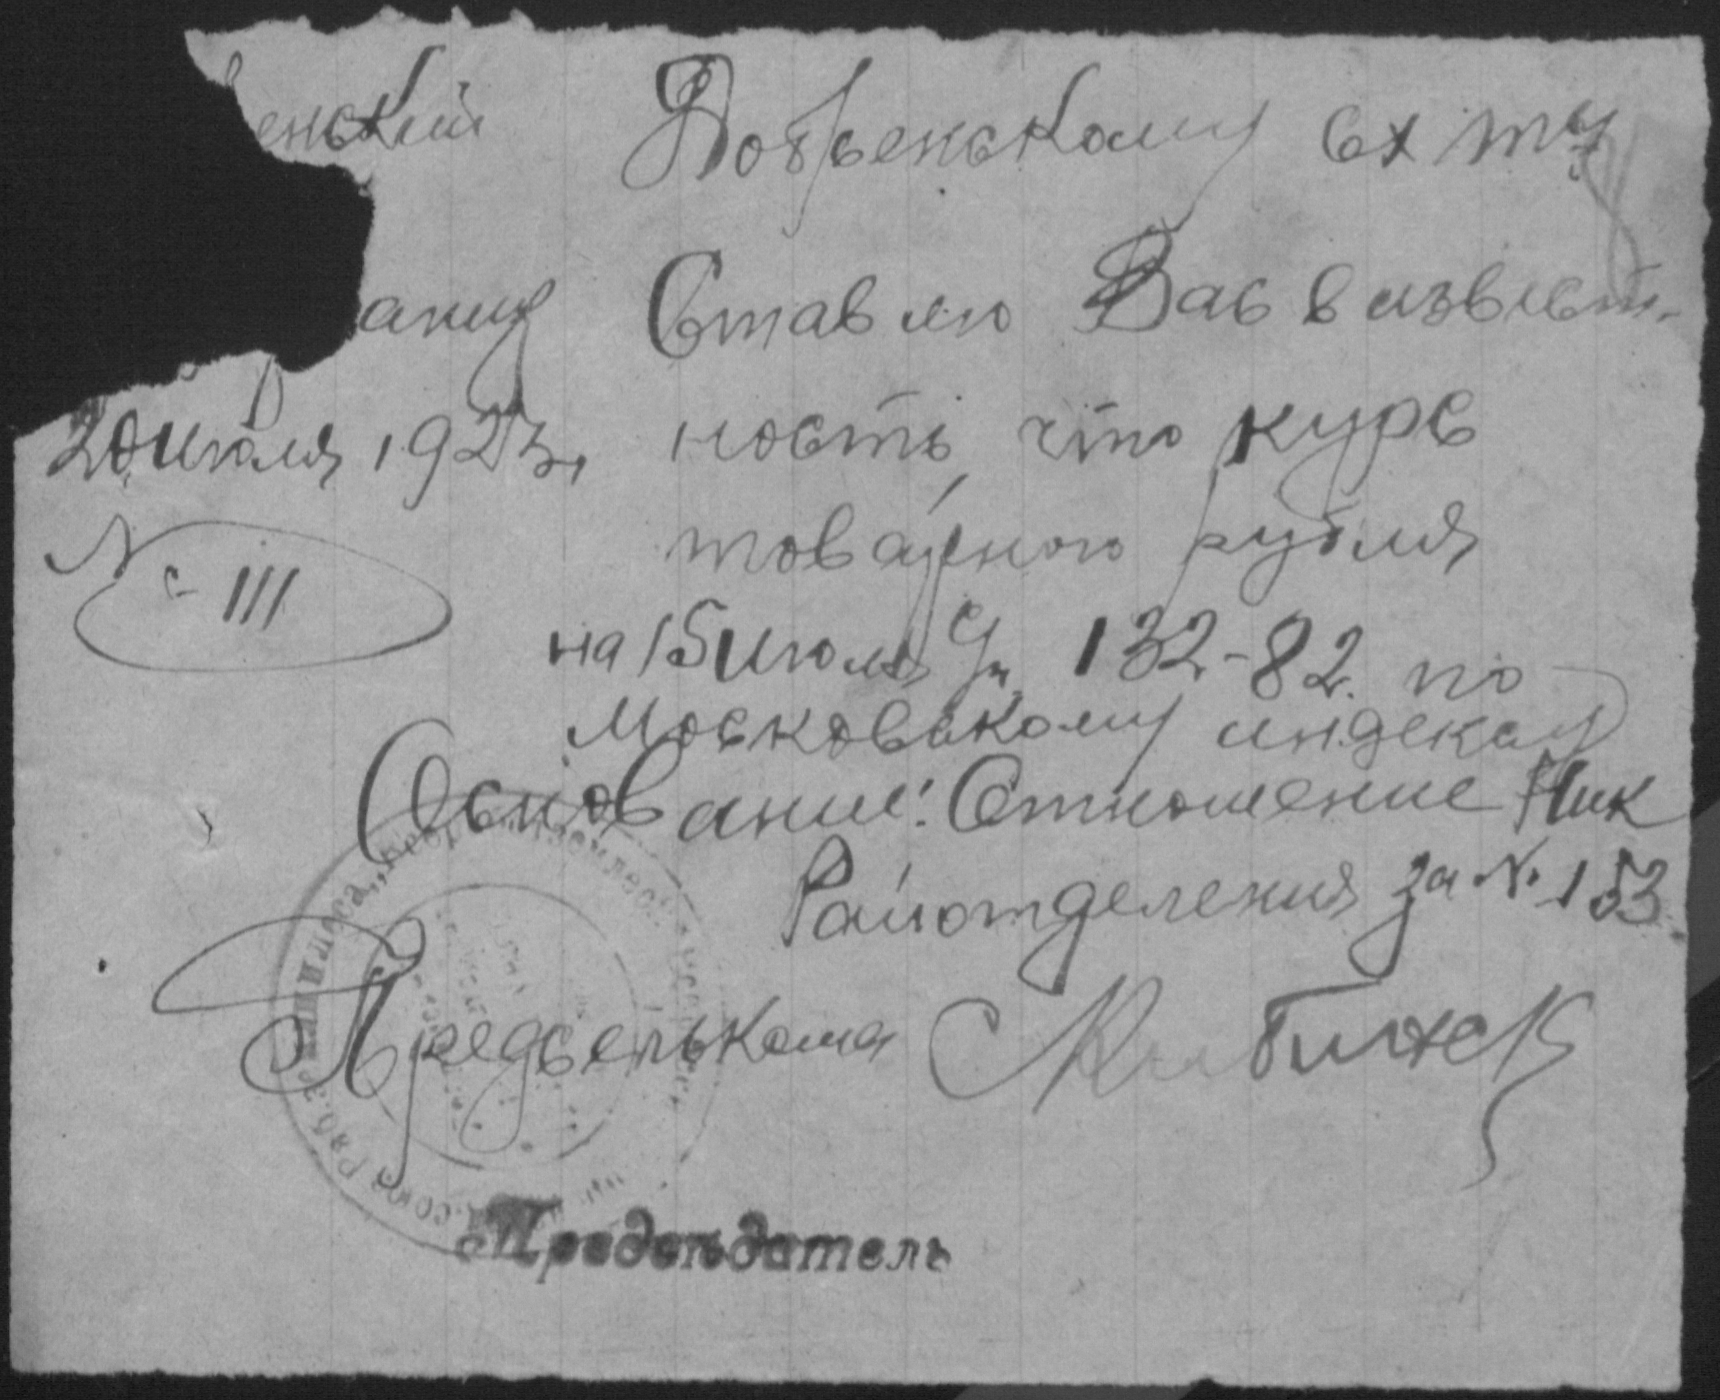 енский
Добренскому сх тву
анид
Ставлю Вас в извест-
20 июля 1923 г,
ность, что курс
товарного рубля
№ - 111
на 15 июля 132-82 по
Московскому индексу
Основание: Отношение Ник
Райотделения за № 153
Предселькома
Председатель